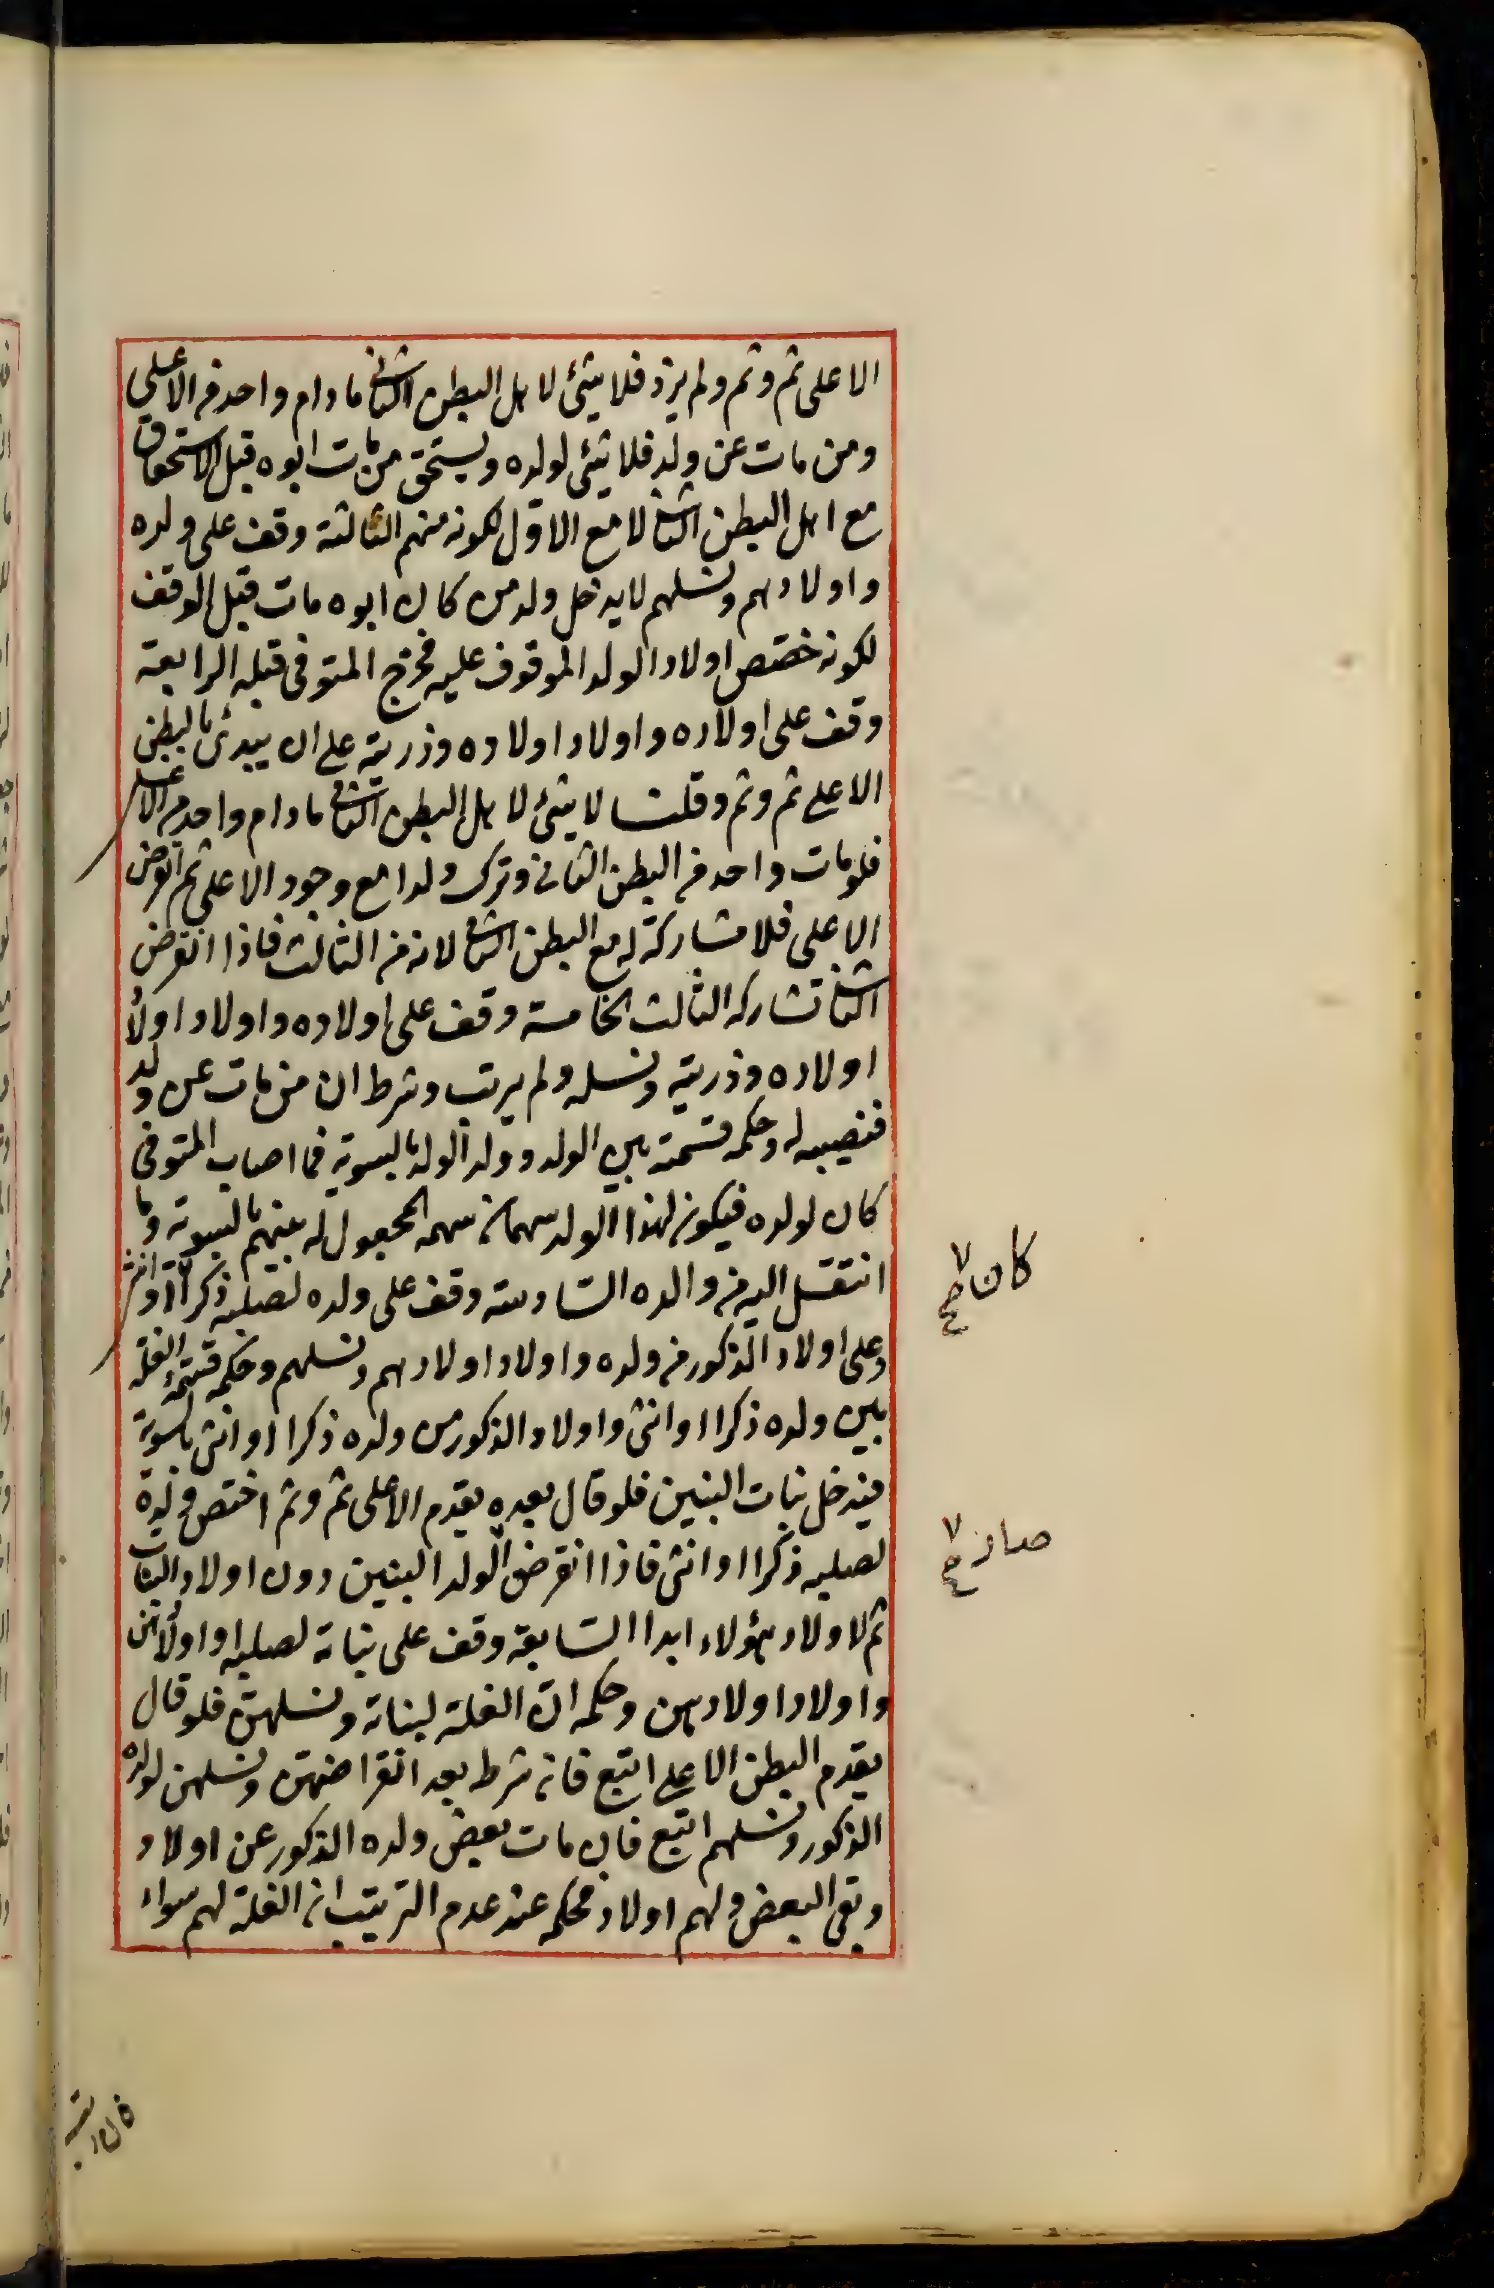 الاعلى ثم وثم ولم يزد فلا شيئ لاهل البطن الثانى مادام واحد من الاعلى
ومن مات عن ولد فلا شيئ لولده ويستحق من مات ابوه قبل الاستحقاق
مع اهل البطن الثانى لا مع الاول لكونه منهم الثالثة وقف على ولده
واولادهم ونسلهم لايدخل ولد من كان ابوه مات قبل الوقف
لكونه خصص اولاد الولد الموقوف عليه فخرج المتوفى قبله الرابعة
وقف على اولاده واولاد اولاده وذريته على ان يبدئ بالبطن
الاعلى ثم وثم وقلنا لا شيئ لاهل البطن الثانى مادام واحد من الاعلى
فلو مات واحد من البطن الثانى وترك ولدا مع وجود الاعلى ثم انقرض
الاعلى فلا مشاركة له مع البطن الثانى لانه من الثالث فاذا انقرض
الثانى تشاركه الثالث الخامسة وقف على اولاده واولاد اولاد
اولاده وذريته ونسله ولم يرتب وشرط ان من مات عن ولد
فنصيبه له وحكمه قسمته بين الولد وولد الولد بالسوية فما اصاب المتوفى
كان لولده فيكون لهذا الولد سهمان سهمه المجعول له بينهم بالسوية وما
انتقل اليه من والده السادسة وقف على ولده لصلبه ذكرا او انثى
وعلى اولاد الذكور من ولده واولاد اولادهم ونسلهم وحكمه قسمة الغلة
بين ولده ذكرا او انثى واولاد الذكور من ولده ذكرا او انثى بالسوية
فيدخل بنات البنين فلو قال بعده يقدم الاعلى ثم وثم اختص ولده
لصلبه ذكرا او انثى فاذا انقرض الولد البنين دون اولاد البنات
ثم لاولاد هؤلاء ابدا السابعة وقف على بناته لصلبه واولادهن
واولاد اولادهن وحكمه ان الغلة لبناته ونسلهن فلو قال
يقدم البطن الاعلى اتبع فان شرط بعد انقراضهن ونسلهن لولده
الذكور ونسلهم اتبع فان مات بعض ولده الذكور عن اولاد
وبقى البعض ولهم اولاد فحكمه عند عدم الترتيب ان الغلة لهم سواء
كان
صار
فان رتب